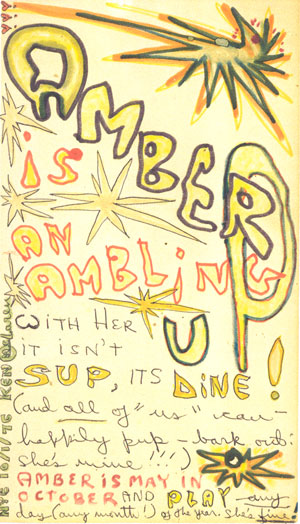 AMBER
is
AN
AMBLiNG
UP
WiTH HER
iT iSN'T
SUP, iTS DiNE!
(and all of "us" can
happily pup - bark out:
she's mine!!!)
AMBER iS MAY iN
OCTOBER AND PLAY - any
day (any month!) of the year. She's fine.
NYC 10/1/76 KEN